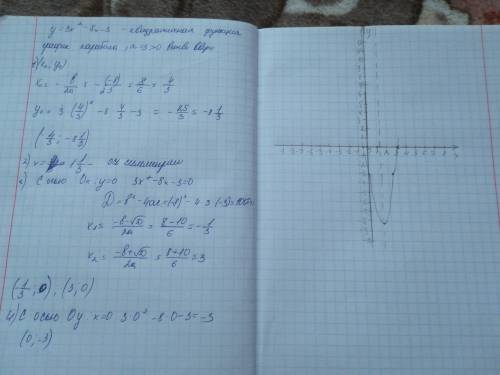 y=3x²-8x-3 - квадратичная функция
график парабола, a=3>0 Ветви вверх
1) (x₀; y₀)
x₀ = -b/2a = -(-8)/2·3 = 8/6 = 4/3
y₀ = 3·(4/3)²-8·4/3-3 = -25/3 = -8 1/3
(4/3; -8 1/3)
2) x= - ось симметрии
3) С осью Ox: y=0 3x²-8x-3=0
D=b²-4ac=(-8)²-4·3·(-3)=100
x₁= -b-√D/2a = 8-10/6 = -1/3
x₂= -b+√D/2a = 8+10/6 = 3
(-1/3, 0), (3, 0)
4) С осью Oy x=0 3·0²-8·0-3=-3
(0, -3)